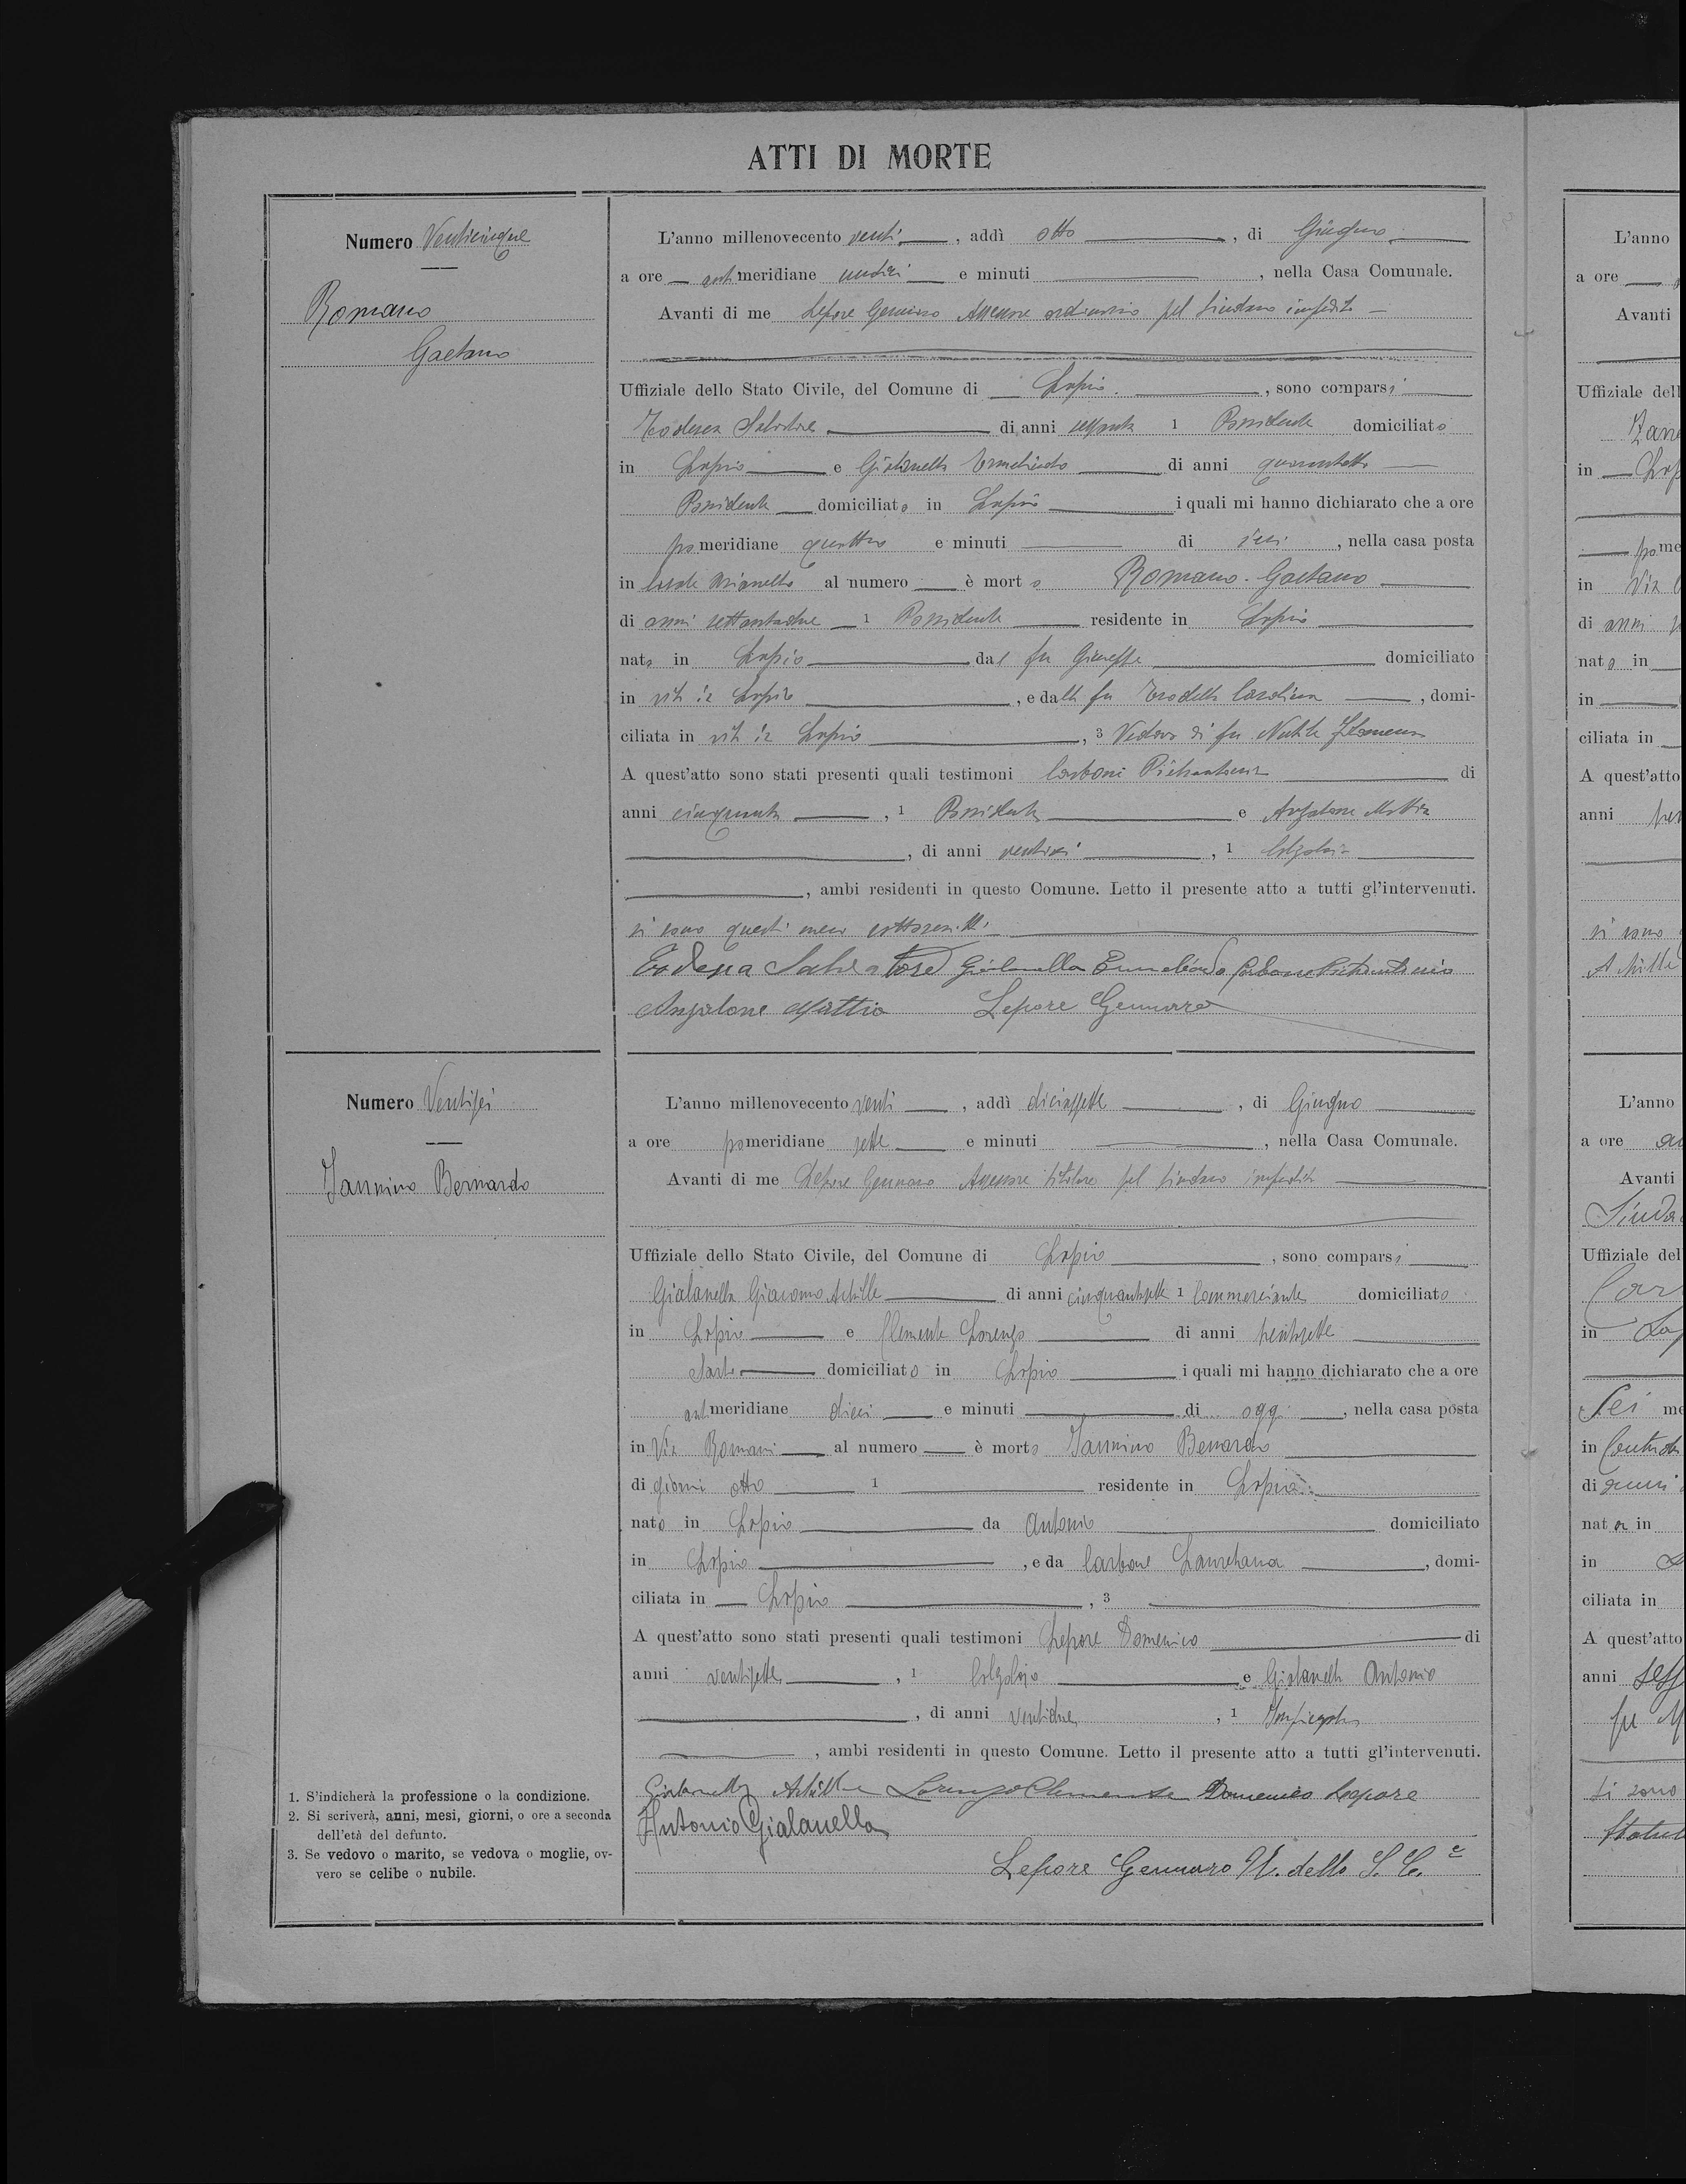 ATTI DI MORTE
Numero Venticinque
Romano
Gaetano
L'anno millenovecento venti, addì otto, di Giugno
a ore antimeridiane undici e minuti, nella Casa Comunale.
Avanti di me Lepore Gennaro Assessore ordinario pel Sindaco impedito
Uffiziale dello Stato Civile, del Comune di Lapio, sono comparsi
Todesca Salvatore di anni sessanta 1 Possidente domiciliato
in Lapio e Gialanella Ermelindo di anni quarantotto
Possidente domiciliato in Lapio i quali mi hanno dichiarato che a ore
pomeridiane quattro e minuti di ieri, nella casa posta
in al numero è morto Romano Gaetano
di anni settantadue 1 Possidente residente in Lapio
nato in Lapio dal fu Giuseppe domiciliato
in vita in Lapio, e dalla fu Carolina, domi-
ciliata in vita in Lapio, 3 Vedovo di fu Filomena
A quest'atto sono stati presenti quali testimoni Carboni Pietrantonio di
anni cinquanta, 1 Possidente e Anzalone Mattia
, di anni ventisei, 1 Calzolaio
, ambi residenti in questo Comune. Letto il presente atto a tutti gl'intervenuti.
si sono questi meco sottoscritti
Todesca Salvatore Gialanella Ermelindo Carbone Pietrantonio
Anzalone Mattia Lepore Gennaro
Numero Ventisei
Iannino Bernardo
L'anno millenovecento venti, addì diciassette, di Giugno
a ore pomeridiane sette e minuti, nella Casa Comunale.
Avanti di me Lepore Gennaro Assessore titolare pel Sindaco impedito
Uffiziale dello Stato Civile, del Comune di Lapio, sono comparsi
Gialanella Giacomo Achille di anni cinquantasette 1 Commerciante domiciliato
in Lapio e Clemente Lorenzo di anni trentasette
Sarto domiciliato in Lapio i quali mi hanno dichiarato che a ore
antimeridiane dieci e minuti di oggi, nella casa posta
in Via Romani al numero è morto Iannino Bernardo
di giorni otto 1 residente in Lapio
nato in Lapio da Antonio domiciliato
in Lapio, e da Carbone Lauretana, domi-
ciliata in Lapio, 3
A quest'atto sono stati presenti quali testimoni Lepore Domenico di
anni ventisette, 1 Calzolaio e Gialanella Antonio
, di anni ventidue, 1 Impiegato
, ambi residenti in questo Comune. Letto il presente atto a tutti gl'intervenuti.
Gialanella Achille Lorenzo Clemente Domenico Lepore
Antonio Gialanella
Lepore Gennaro U. dello S. C.e
1. S'indicherà la professione o la condizione.
2. Si scriverà, anni, mesi, giorni, o ore a seconda
dell'età del defunto.
3. Se vedovo o marito, se vedova o moglie, ov-
vero se celibe o nubile.
L'anno
a ore
Avanti
Uffiziale dell
in
in Via
di anni
nato in
in
ciliata in
A quest'atto
anni
si sono
Achille
L'anno
a ore
Avanti
Uffiziale del
in
Sei me
in
di anni
nata in
in
ciliata in
A quest'atto
anni
fu
si sono